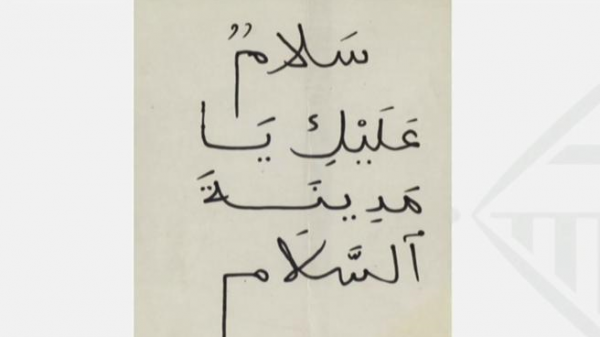 سَلامٌ
عَلَيْكِ يَا
مَدِينَةَ
ٱلسَّلَام